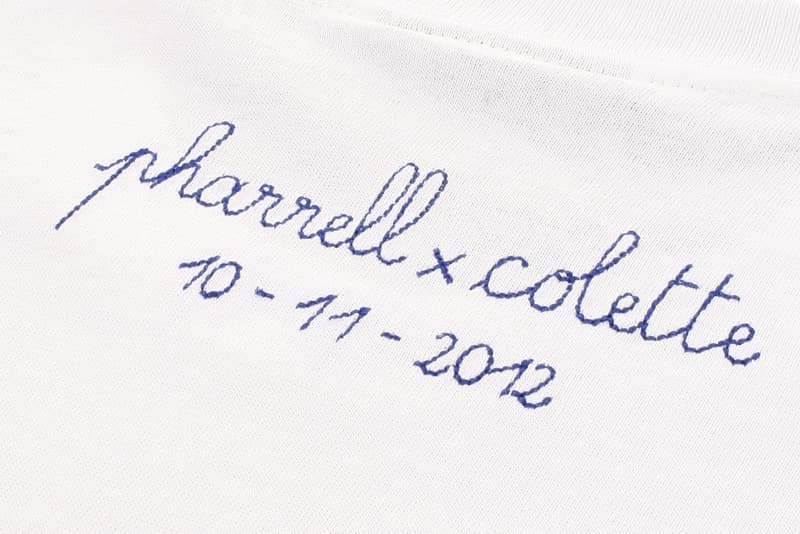 pharrell x colette
10-11-2012